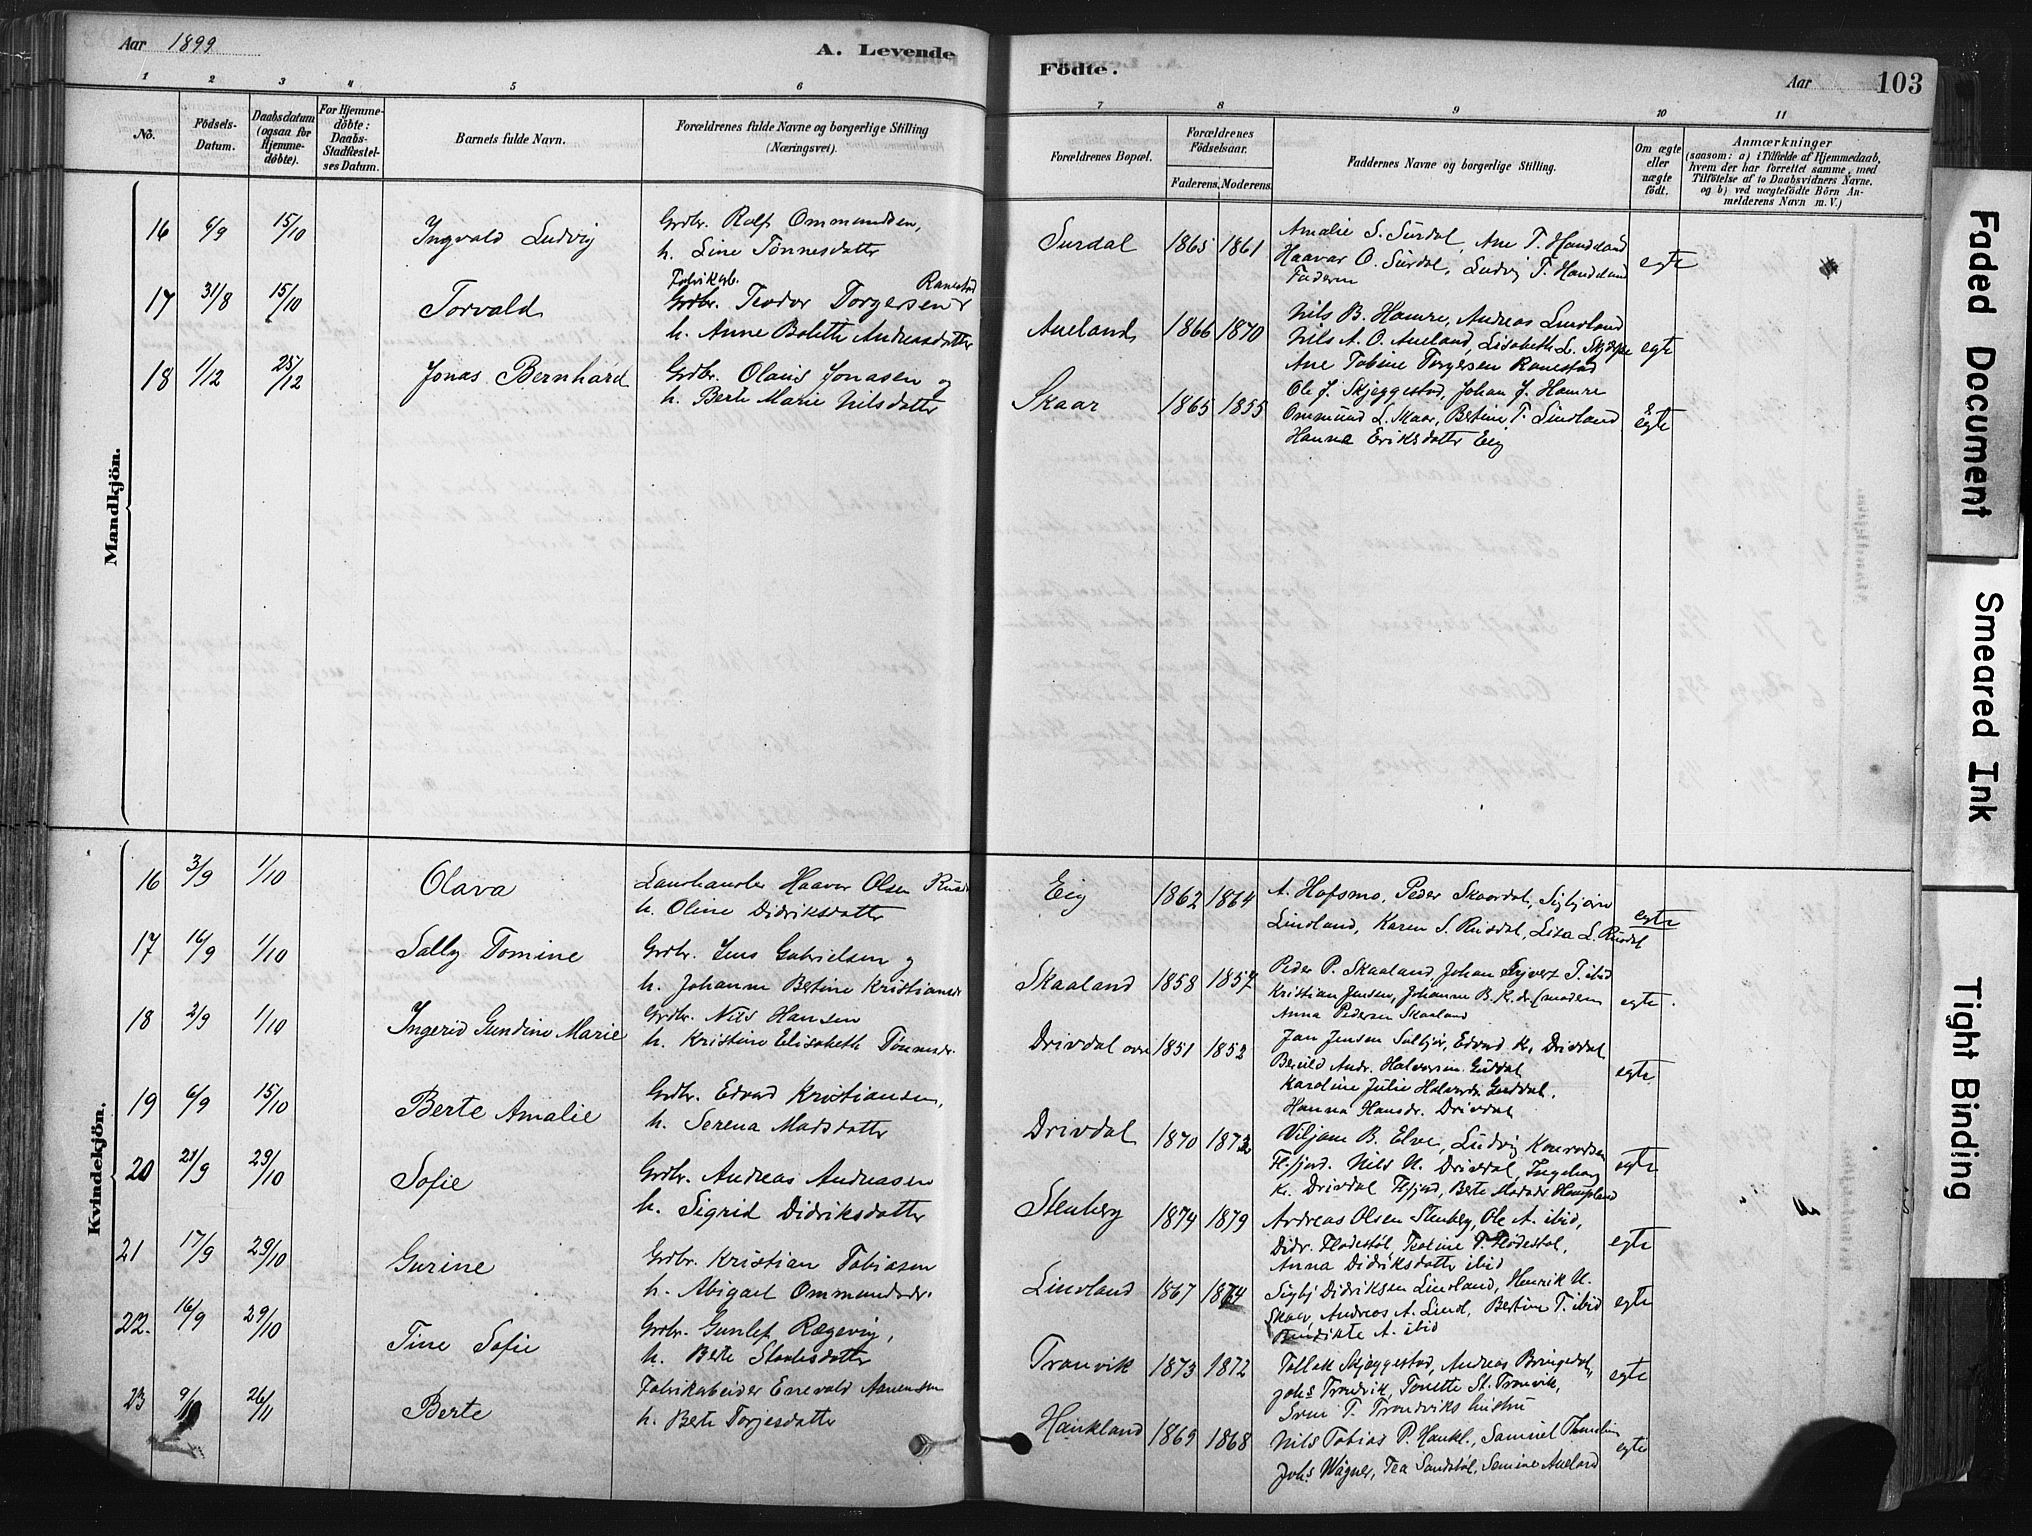 Aar 1899
A. Levende
Födte.
Aar
103
1 2 3 4 5 6 7 8 9 10 11
No.
Födsels-Datum.
Daabsdatum (ogsaa for Hjemme-döbte).
For Hjemme-döbte: Daabs-Stadfæstel-ses Datum.
Barnets fulde Navn.
Forældrenes fulde Navne og borgerlige Stilling
(Næringsvei).
Forældrenes Bopæl.
Forældrenes Födselsaar.
Faderens. Moderens.
Faddernes Navne og borgerlige Stilling.
Om ægte eller uægte födt.
Anmærkninger
(saasom: a) i Tilfælde af Hjemmedaab,
hvem der har forrettet samme, med
Tilföielse af to Daabsvidners Navne,
og b) ved uægtefödte Börn An-
melderens Navn m. V.)
Mandkjön.
16 6/9 15/10 Ingvald Ludvig
Grdbr. Rolf Ommundsen,
h. Line Tönnesdatter
Surdal 1865 1861
Amalie S. Surdal, Ane T. Handeland
Haavar O. Surdal, Ludvig T. Handeland
Faderen
egte
17 31/8 15/10 Torvald
Fabrikarb. Ranestad
Grdbr. Teodor Torgersen
h. Anne Bolette Andreasdatter
Aueland 1866 1870
Nils B. Hamre, Andreas Lindland
Nils A. O. Aueland, Lisabeth L.
Ane Tobine Torgersen Ranestad
egte
18 1/12 25/12 Jonas Bernhard
Grdbr. Olaus Jonasen og
h. Berte Marie Nilsdatter
Skaar 1865 1855
Ole J. Skjeggestad, Johan J. Hamre
Ommund L. Skaar, Bertine T. Lindland
Hanna Eriksdatter Eig
egte
Kvindekjön.
16 3/9 1/10 Olava
Landhandler Haavar Olsen
h. Oline Didriksdatter
Eig 1862 1864
A. Hofsmo, Peder Skaardal, Sigbjörn
Lindland, Karen S. Rusdal, Lisa L. Rusdal
egte
17 16/9 1/10 Sally Tomine
Grdbr. Jens Gabrielsen og
h. Johanne Bertine Kristiansdr
Skaaland 1858 1857
Peder P. Skaaland, Johan Syvert T. ibid
Kristian Jensen, Johanne B. K.dr (moderen
Anna Pedersen Skaaland
egte.
18 2/9 1/10 Ingerid Gundine Marie
Grdbr. Nils Hansen
h. Kristine Elisabeth Tönnesdr.
Drivdal 1851 1852
Jan Jensen Solbjör, Edvard K. Drivdal
Andr. Halvorsen Guddal
Karoline Julie Guddal,
Hanna Hansdr. Drivdal
egte
19 6/9 15/10 Berte Amalie
Grdbr. Edvard Kristiansen,
h. Serena Madsdatter
Drivdal 1870 1873
Viljam B. Elve, Ludvig Konradsen
Flfjord. Nils K. Drivdal, Ingeborg
K. Drivdal Flfjord, Berte
egte
20 21/9 29/10 Sofie
Grdbr. Andreas Andreasen
h. Sigrid Didriksdatter
Stenberg 1874 1879
Andreas Olsen Stenberg, Ole A. ibid,
Didr. Flodestöl, Teoline T. Flodestöl,
Anna Didriksdatter ibid
egte
21 17/9 29/10 Gurine
Grdbr. Kristian Tobiasen
h. Abigael Ommundsdr.
Lindland 1867 1874
Sigbj Didriksen Lindland, Henrik N.
Skaar, Andreas A. Lind, Bertine T. ibid
Bendikte A. ibid
egte
22. 16/9 29/10 Tine Sofie
Grdbr. Gunlef Rægevig,
h. Berte Staalesdatter
Tronvik 1873 1872
Tollak Skjeggestad, Andreas Bringedal,
Johs Trondvik, Tonette St. Tronvik,
Sven T. Trondviks hustru
egte
23 9/11 26/11 Berte
Fabrikarbeider Enevald Aanensen
h. Berte Torjesdatter
Haukland 1869 1868
Nils Tobias P. Haukl., Samuel
Johs Wågner, Tea Sandstöl, Semine Aueland
egte
Faded Document
Smeared Ink
Tight Binding